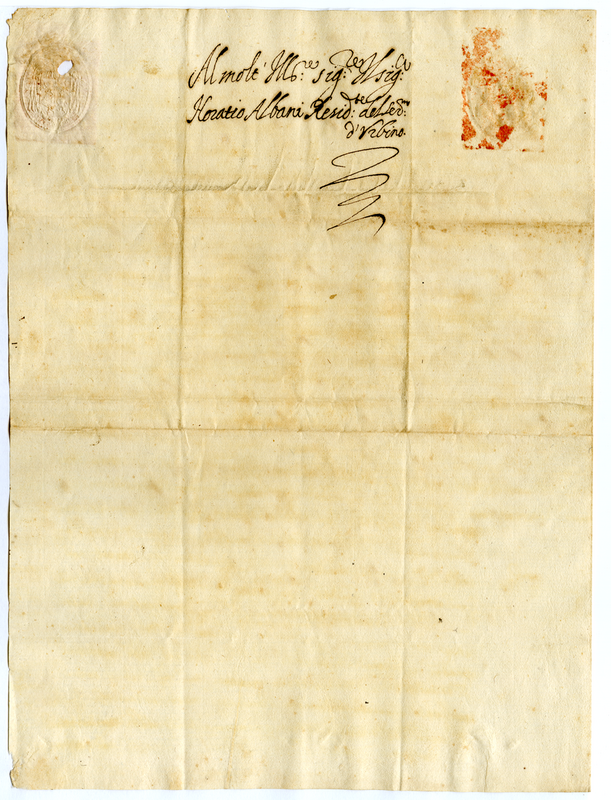 Al molt' Ill:re sig:re Il sig:r
Horatio Albani Resid:te del ser:mo
d'Urbino.